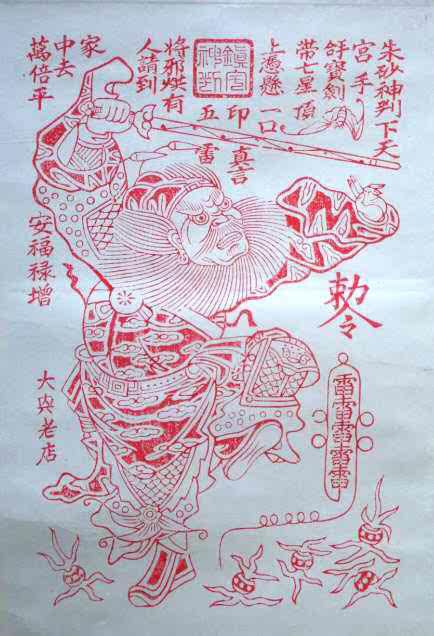 朱砂神判下天
宮手
寶劍
帶七星頂
上憑懸一口
鎮宅
神判
印
真言
五雷
將邪烘有
人請到
家
中去
萬倍平
安福祿增
勅令
雷雷雷雷雷
大興老店